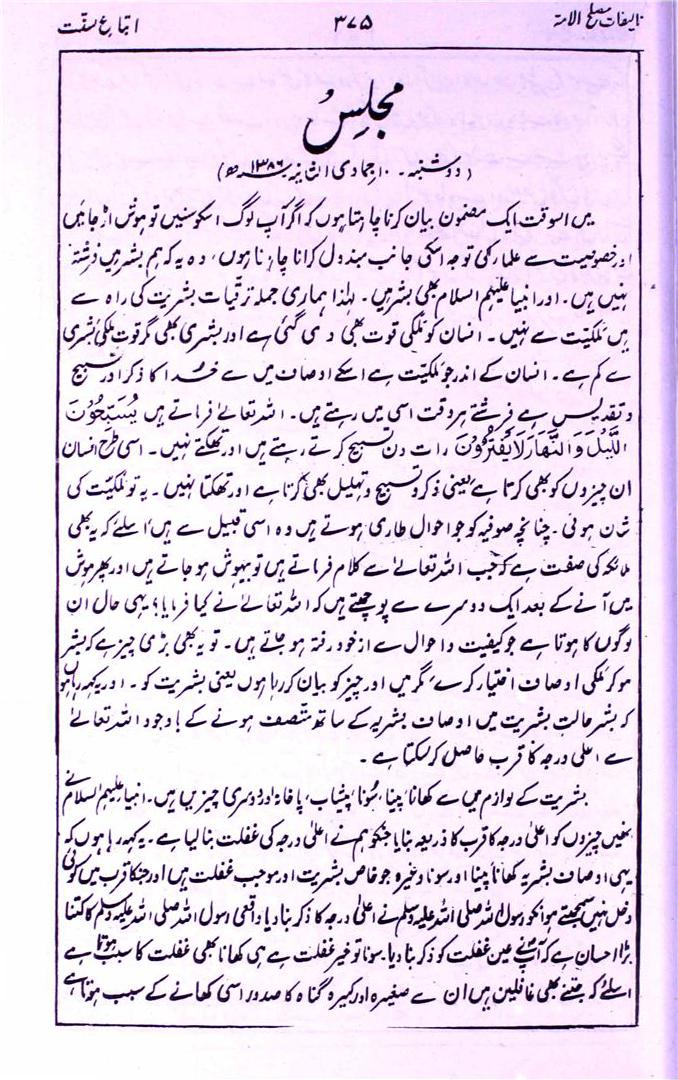 تالیفات مصلح الامۃ ۳۷۵ اتباع سنّت
مجلس
(دو شنبہ ۔ ۱۰ جمادی الثانیہ ۱۳۸۶ھ)
میں اسوقت ایک مضمون بیان کرنا چاہتا ہوں کہ اگر آپ لوگ اسکو سنیں تو ہوش اڑ جائیں
اور خصوصیت سے علماء کی توجہ اسکی جانب مبذول کرانا چاہتا ہوں، وہ یہ کہ ہم بشر ہیں فرشتہ
نہیں ہیں ۔ اور انبیاء علیہم السلام بھی بشر ہیں ۔ لہٰذا ہماری جملہ ترقیات بشریت کی راہ سے
ہیں مَلکیّت سے نہیں ۔ انسان کو مَلکی قوت بھی دی گئی ہے اور بشری بھی مگر قوتِ مَلکی بشری
سے کم ہے ۔ انسان کے اندر جو مَلکیت ہے اسکے اوصاف میں سے خدا کا ذکر اور تسبیح
و تقدیس ہے فرشتے ہر وقت اسی میں رہتے ہیں ۔ اللہ تعالےٰ فرماتے ہیں یُسَبِّحُوْنَ
اللَّیْلَ وَالنَّھَارَ لَا یَفْتُرُوْنَ رات دن تسبیح کرتے رہتے ہیں اور تھکتے نہیں ۔ اسی طرح انسان
ان چیزوں کو بھی کرتا ہے یعنی ذکر و تسبیح و تہلیل بھی کرتا ہے اور تھکتا نہیں ۔ یہ تو مَلکیت کی
شان ہوئی ۔ چنانچہ صوفیہ کو جو احوال طاری ہوتے ہیں وہ اسی قبیل سے ہیں، اسلئے کہ یہ بھی
ملائکہ کی صفت ہے کہ جب اللہ تعالےٰ سے کلام فرماتے ہیں تو بیہوش ہو جاتے ہیں اور پھر ہوش
میں آنے کے بعد ایک دوسرے سے پوچھتے ہیں کہ اللہ تعالےٰ نے کیا فرمایا؟ یہی حال ان
لوگوں کا ہوتا ہے جو کیفیت و احوال سے از خود رفتہ ہو جاتے ہیں ۔ تو یہ بھی بڑی چیز ہے کہ بشر
ہو کر مَلکی اوصاف اختیار کرے، مگر میں اور چیز کو بیان کر رہا ہوں یعنی بشریت کو ۔ اور یہ کہہ رہا ہوں
کہ بشر حالتِ بشریت میں اوصاف بشریہ کے ساتھ متصف ہونے کے باوجود اللہ تعالےٰ
سے اعلیٰ درجہ کا قرب حاصل کر سکتا ہے ۔
بشریت کے لوازم میں سے کھانا، پینا، سونا، پیشاب، پاخانہ اور دوسری چیزیں ہیں ۔ انبیاء علیہم السلام نے
انھیں چیزوں کو اعلیٰ درجہ کا قرب کا ذریعہ بنایا جنکو ہم نے اعلیٰ درجہ کی غفلت بنا لیا ہے ۔ یہ کہہ رہا ہوں کہ
یہی اوصاف بشریہ کھانا پینا اور سونا وغیرہ جو خاص بشریت اور موجب غفلت ہیں اور جنکا قرب میں کوئی
دخل نہیں سمجھتے ہو انکو رسول اللہ صلی اللہ علیہ وسلم نے اعلیٰ درجہ کا ذکر بنا دیا واقعی رسول اللہ صلی اللہ علیہ وسلم کا کتنا
بڑا احسان ہے کہ آپؐ نے عین غفلت کو ذکر بنا دیا ۔ سونا تو خیر غفلت ہے ہی کھانا بھی غفلت کا سبب ہوتا ہے
اسلئے کہ جتنے بھی غافلین ہیں ان سے صغیرہ اور کبیرہ گناہ کا صدور اسی کھانے کے سبب ہوتا ہے